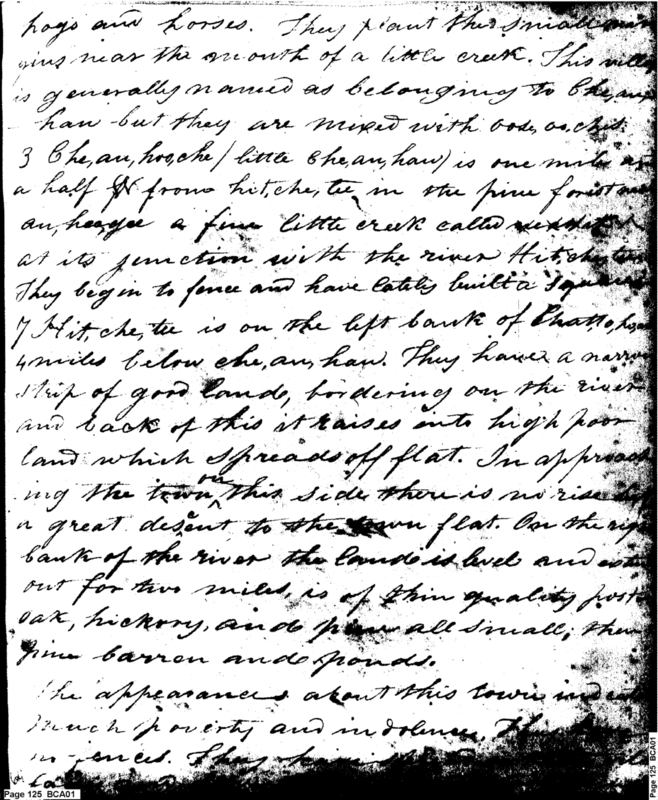 hogs and horses. They plant the small mar
gins near the mouth of a little creek. This villa
is generally named as belonging to Che,au,
hau but they are mixed with oose,oo,chee.
3 Che,au,hoo,che (little Che,au,hau) is one mile and
a half from hit,che,tee in the pine forest
au,he,gee a fine little creek called
at its junction with the river Hit,che,tee
They begin to fence and have lately built a square
7 Hit,che,tee is on the left bank of Chatto,ho,
4 miles below che,au,hau. They have a narrow
strip of good land, bordering on the river
and back of this it raises into high poor
land which spreads off flat. In approach
ing the town on this side there is no rise but
a great descent to the town flat. On the right
bank of the river the land is level and
out for two miles, is of thin quality post
oak, hickory, and pine all small, then
pine barren and ponds.
The appearance about this town indicate
much poverty and indolence. They have
no fences. They have
Page 125 BCA01
Page 125 BCA01